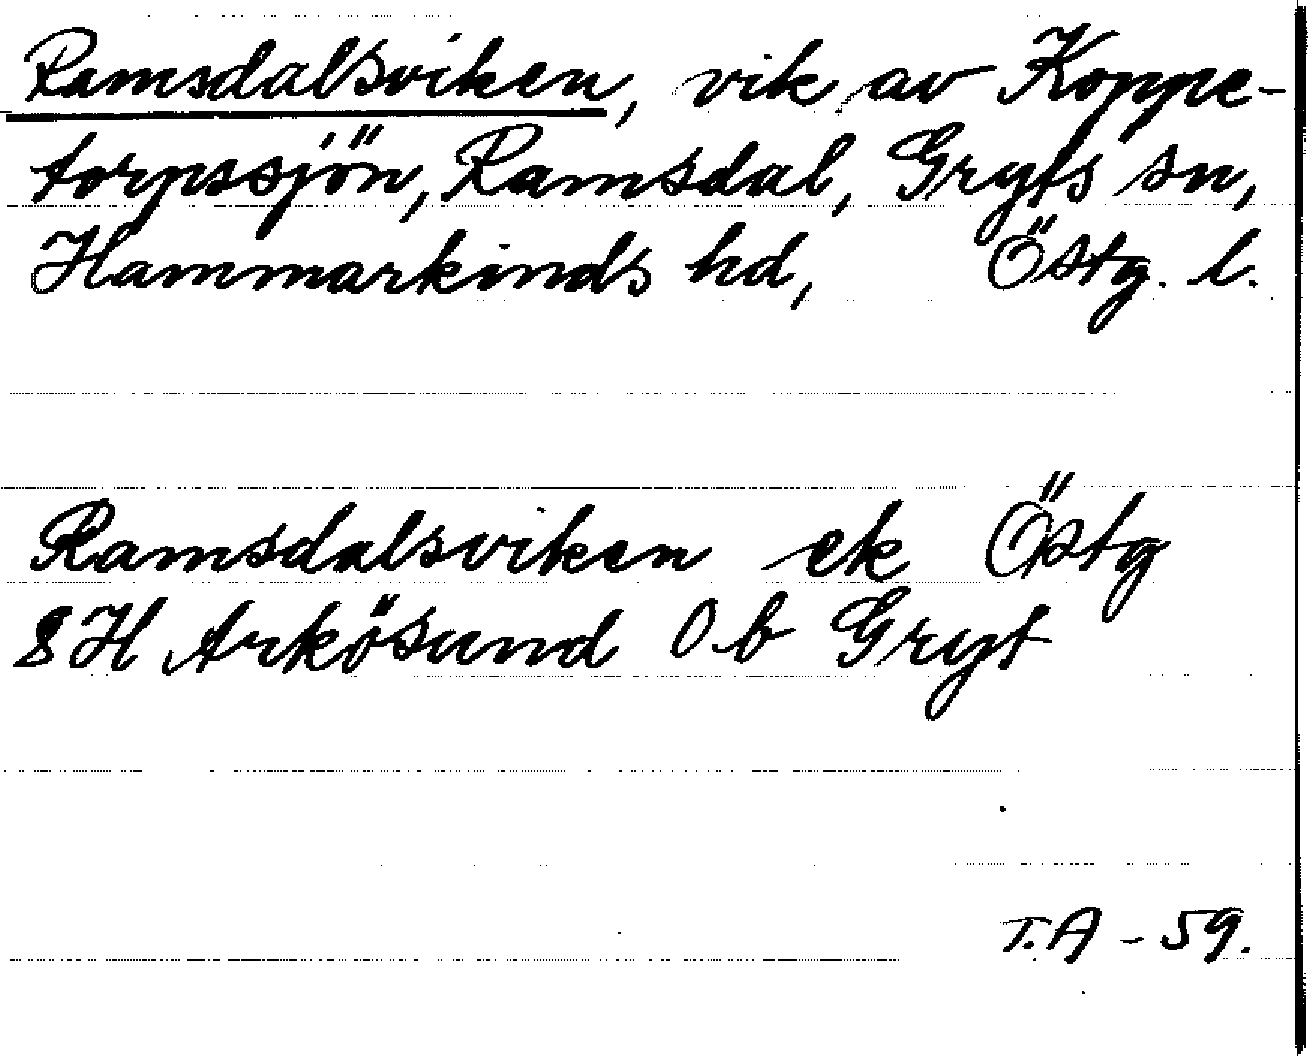 Ramsdalsviken, vik av Koppe-
torpssjön, Ramsdal, Gryts sn,
Hammarkinds hd, Östg. l.
Ramsdalsviken ek Östg
8H Arkösund 0b Gryt
T.A - 59.